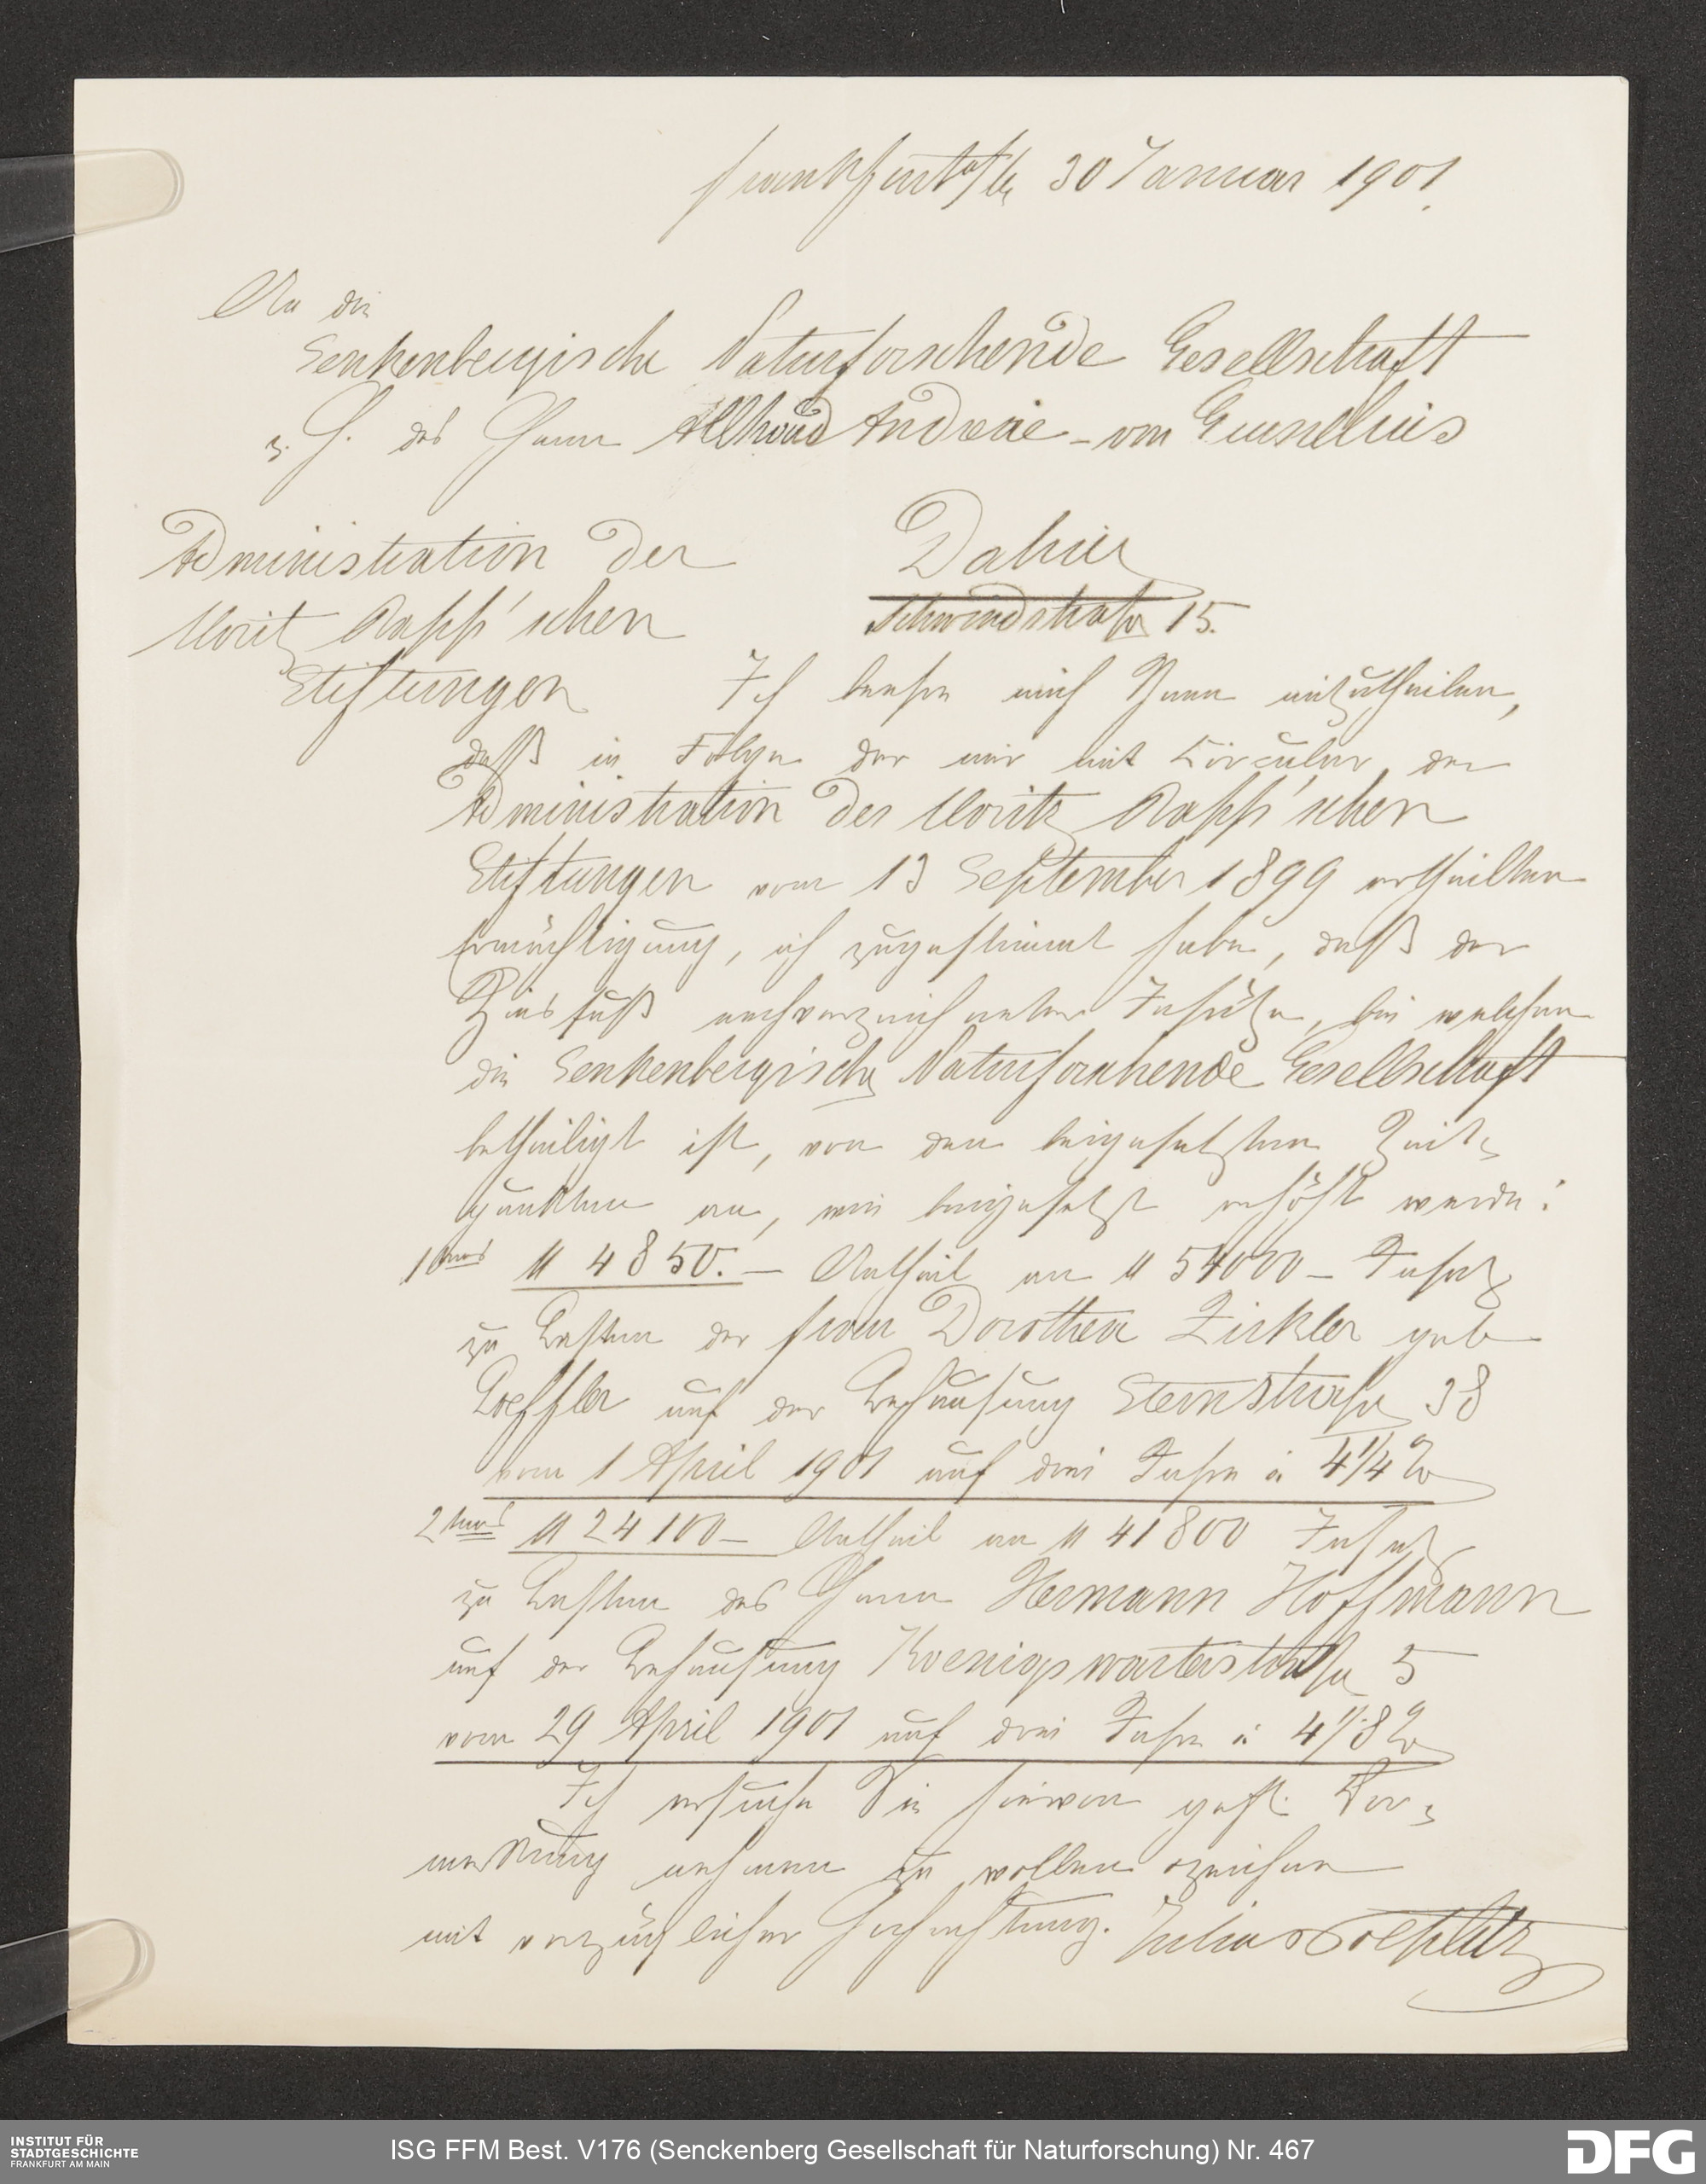 Frankfurt a/M 30 Januar 1901.
An die
Senkenbergische Naturforschende Gesellschaft
z. H. des Herrn Athard Andreae - von
Administration der
Moritz Rapp'schen
Stiftungen
Dahier
Schwindstraße 15.
Ich beehre mich Ihnen mitzutheilen,
daß in Folge der mir mit Circular der
Administration der Moritz Rapp'schen
Stiftungen vom 13 September 1899 ertheilten
Ermächtigung, ich zugestimmt habe, daß der
Zinsfuß nachverzeichneter Insätze, bei welchen
die Senkenbergische Naturforschende Gesellschaft
betheiligt ist, von den beigesetzten Zeit-
punkten an, wie beigesetzt erhöht werde:
1tens M 4850.- Antheil an M 54000 - Insatz
zu Lasten der Frau Dorothea Zirkler geb
Loeffler auf der Behausung Sternstraße 38
vom 1 April 1901 auf drei Jahre à 4 1/4 %
2tens M 24100 - Antheil an M 41800 Insatz
zu Lasten des Herrn Hermann Hoffmann
auf der Behausung Koenigswarterstraße 5
vom 29 April 1901 auf drei Jahre à 4 1/8 %
Ich ersuche Sie hiervon gefl. Vor-
merkung nehmen zu wollen & zeichne
mit vorzüglicher Hochachtung. Julius
INSTITUT FÜR
STADTGESCHICHTE
FRANKFURT AM MAIN
ISG FFM Best. V176 (Senckenberg Gesellschaft für Naturforschung) Nr. 467
DFG